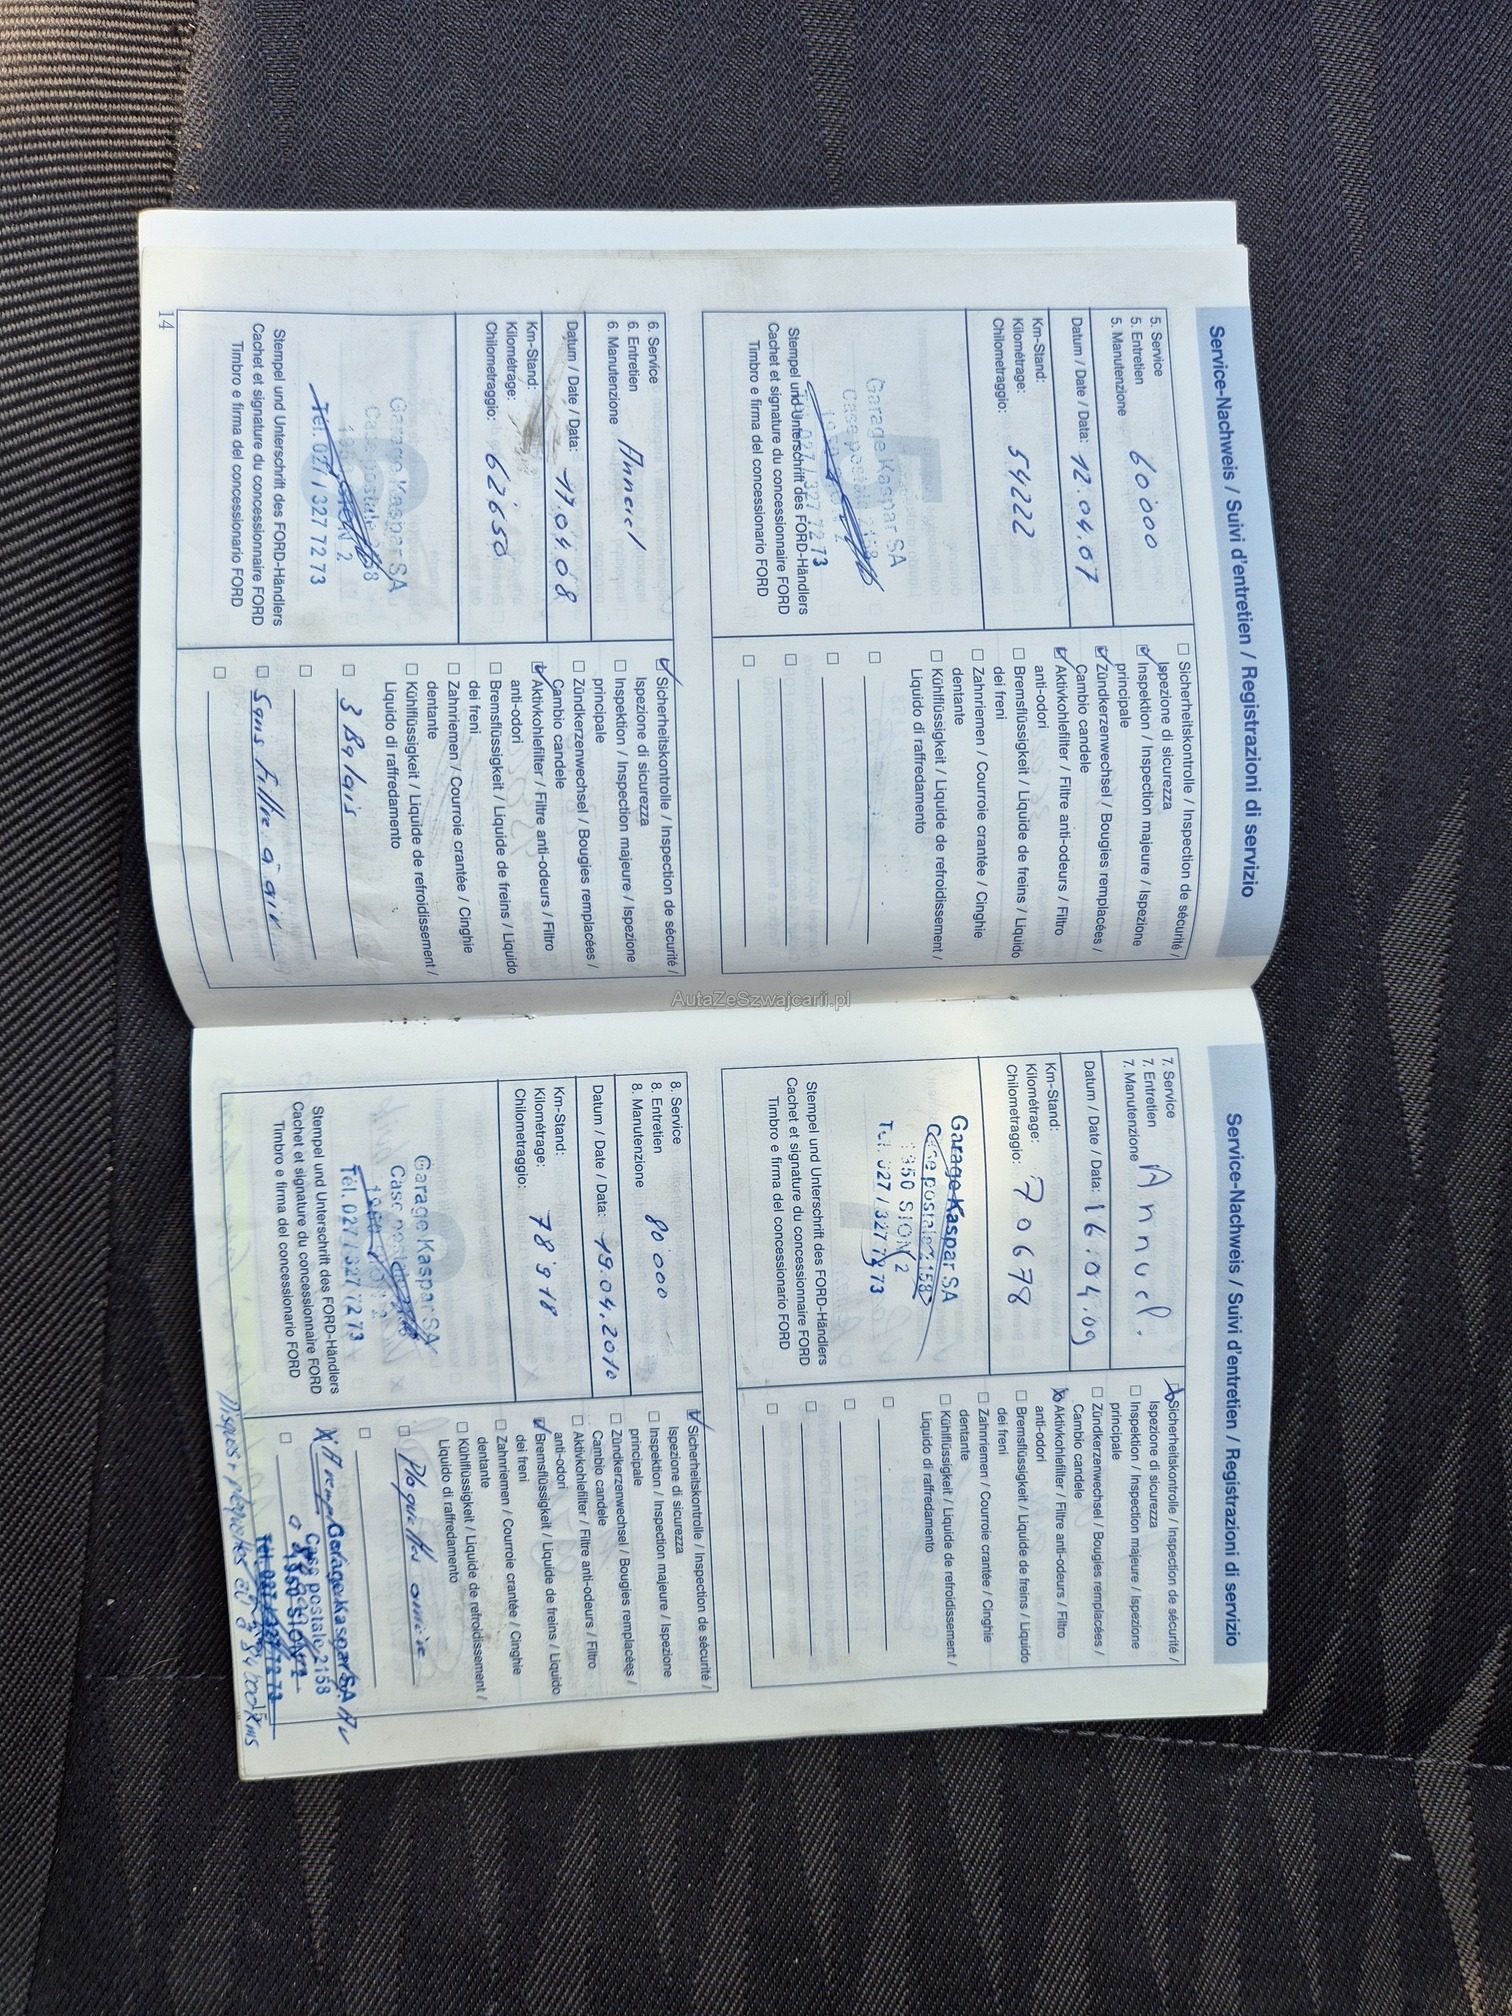 Service-Nachweis / Suivi d'entretien / Registrazioni di servizio
5. Service
5. Entretien 60'000
5. Manutenzione
Datum / Date / Data: 12.04.07
Km-Stand:
Kilométrage: 54222
Chilometraggio:
Garage Kaspar SA
Case postale 2158
Tél. 027 / 327 72 73
Stempel und Unterschrift des FORD-Händlers
Cachet et signature du concessionnaire FORD
Timbro e firma del concessionario FORD
Sicherheitskontrolle / Inspection de sécurité /
Ispezione di sicurezza
Inspektion / Inspection majeure / Ispezione
principale
Zündkerzenwechsel / Bougies remplacées /
Cambio candele
Aktivkohlefilter / Filtre anti-odeurs / Filtro
anti-odori
Bremsflüssigkeit / Liquide de freins / Liquido
dei freni
Zahnriemen / Courroie crantée / Cinghie
dentante
Kühlflüssigkeit / Liquide de refroidissement /
Liquido di raffredamento
6. Service
6. Entretien Annuel
6. Manutenzione
Datum / Date / Data: 17.04.08
Km-Stand:
Kilométrage:
Chilometraggio: 62'650
Garage Kaspar SA
Case postale 2158
1950 SION 2
Tél. 027 / 327 72 73
Stempel und Unterschrift des FORD-Händlers
Cachet et signature du concessionnaire FORD
Timbro e firma del concessionario FORD
Sicherheitskontrolle / Inspection de sécurité /
Ispezione di sicurezza
Inspektion / Inspection majeure / Ispezione
principale
Zündkerzenwechsel / Bougies remplacées /
Cambio candele
Aktivkohlefilter / Filtre anti-odeurs / Filtro
anti-odori
Bremsflüssigkeit / Liquide de freins / Liquido
dei freni
Zahnriemen / Courroie crantée / Cinghie
dentante
Kühlflüssigkeit / Liquide de refroidissement /
Liquido di raffredamento
3 Balais
Sans filtre à air
14
AutaZeSzwajcarii.pl
Service-Nachweis / Suivi d'entretien / Registrazioni di servizio
7. Service
7. Entretien Annuel.
7. Manutenzione
Datum / Date / Data: 16.04.09
Km-Stand:
Kilométrage: 70678
Chilometraggio:
Garage Kaspar SA
Case postale 2158
1950 SION 2
Tél. 027 / 327 72 73
Stempel und Unterschrift des FORD-Händlers
Cachet et signature du concessionnaire FORD
Timbro e firma del concessionario FORD
Sicherheitskontrolle / Inspection de sécurité /
Ispezione di sicurezza
Inspektion / Inspection majeure / Ispezione
principale
Zündkerzenwechsel / Bougies remplacées /
Cambio candele
Aktivkohlefilter / Filtre anti-odeurs / Filtro
anti-odori
Bremsflüssigkeit / Liquide de freins / Liquido
dei freni
Zahnriemen / Courroie crantée / Cinghie
dentante
Kühlflüssigkeit / Liquide de refroidissement /
Liquido di raffredamento
8. Service
8. Entretien 80'000
8. Manutenzione
Datum / Date / Data: 19.04.2010
Km-Stand:
Kilométrage: 78'918
Chilometraggio:
Garage Kaspar SA
Case postale
Tél. 027 / 327 72 73
Stempel und Unterschrift des FORD-Händlers
Cachet et signature du concessionnaire FORD
Timbro e firma del concessionario FORD
Sicherheitskontrolle / Inspection de sécurité /
Ispezione di sicurezza
Inspektion / Inspection majeure / Ispezione
principale
Zündkerzenwechsel / Bougies remplacées /
Cambio candele
Aktivkohlefilter / Filtre anti-odeurs / Filtro
anti-odori
Bremsflüssigkeit / Liquide de freins / Liquido
dei freni
Zahnriemen / Courroie crantée / Cinghie
dentante
Kühlflüssigkeit / Liquide de refroidissement /
Liquido di raffredamento
Plaquettes arrière
Garage Kaspar SA
Case postale 2158
1950 SION 2
Tél. 027 / 327 72 73
15
Disques + plaquettes